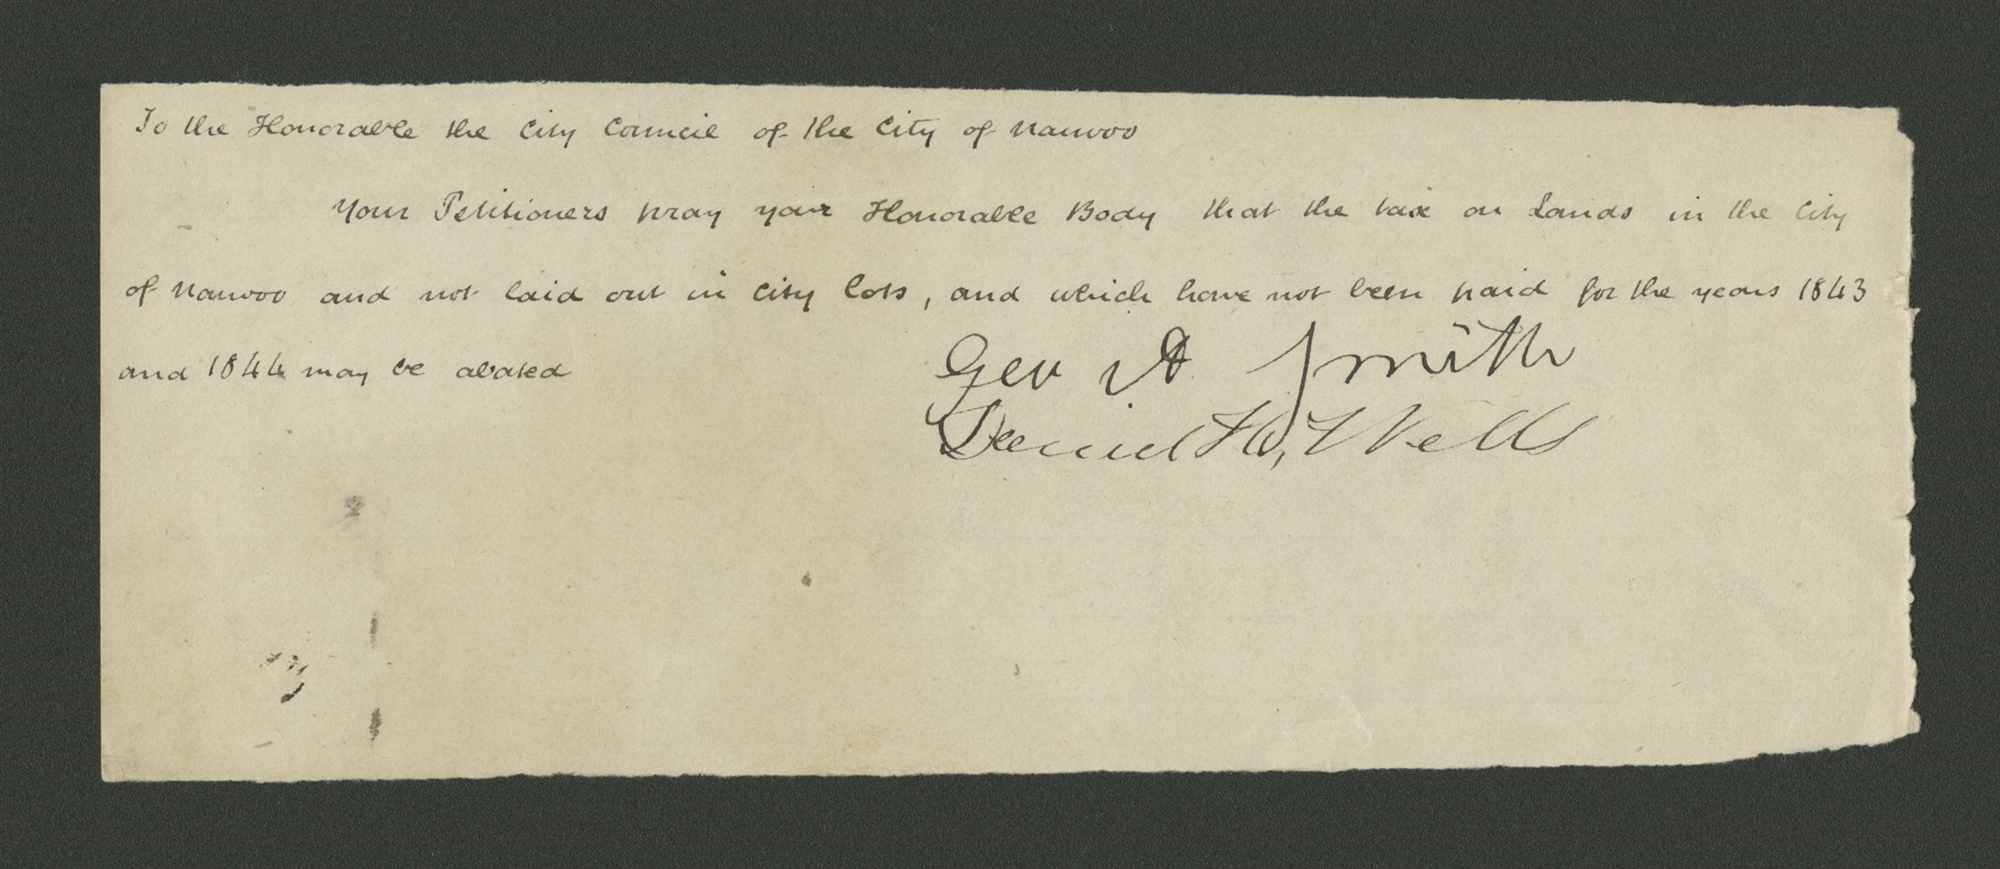 To the Honorable the City Council of the City of Nauvoo
Your Petitioners pray your Honorable Body that the tax on Lands in the City
of Nauvoo and not laid out in City lots, and which have not been paid for the years 1843
and 1844 may be abated
Geo A Smith
Daniel H, Wells